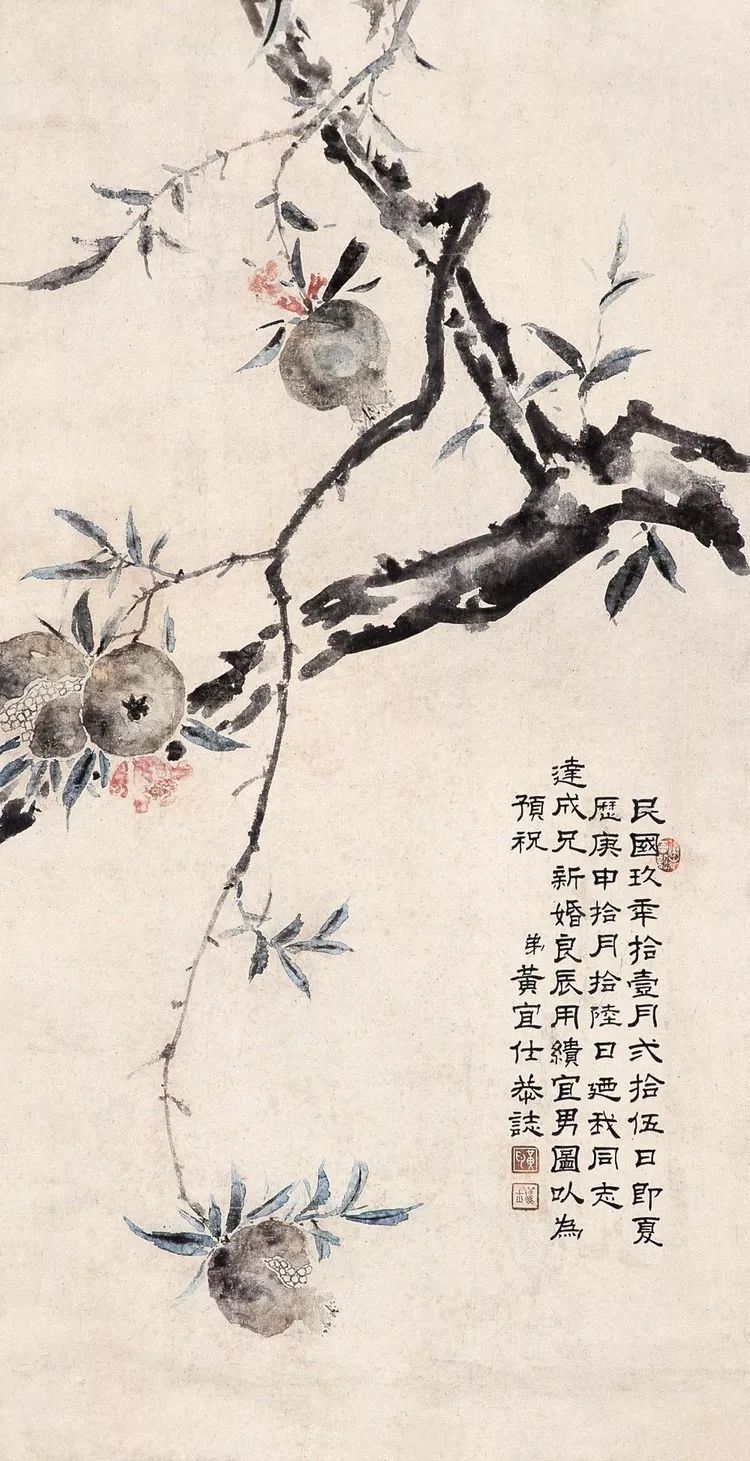 民國玖年拾壹月弍拾伍日即夏
歷庚申拾月拾陸日廼我同志
達成兄新婚良辰用繢宜男圖以為
預祝 弟黃宜仕恭誌